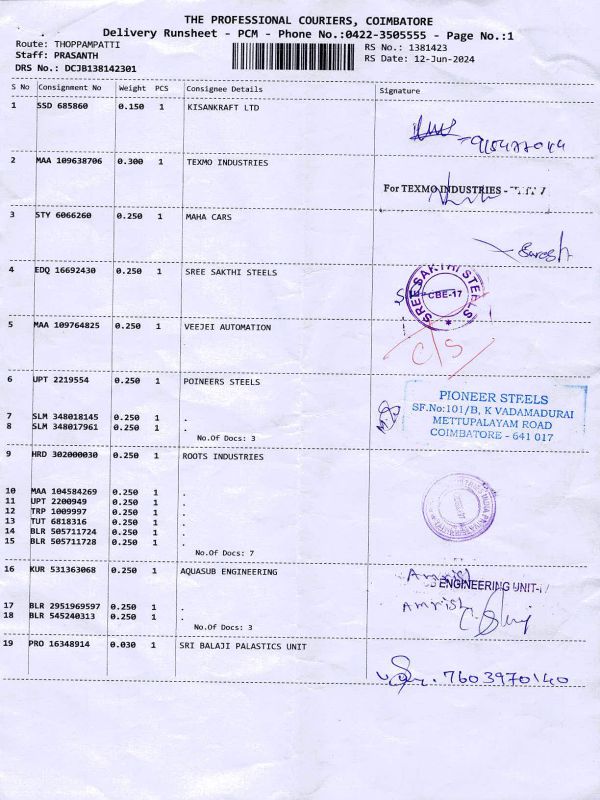 THE PROFESSIONAL COURIERS, COIMBATORE
Delivery Runsheet - PCM - Phone No.:0422-3505555 - Page No.:1
Route: THOPPAMPATTI RS No.: 1381423
Staff: PRASANTH RS Date: 12-Jun-2024
DRS No.: DCJB138142301
S No Consignment No Weight PCS Consignee Details Signature
1 SSD 685860 0.150 1 KISANKRAFT LTD
2 MAA 109638706 0.300 1 TEXMO INDUSTRIES
For TEXMO INDUSTRIES -
3 STY 6066260 0.250 1 MAHA CARS
Suresh
4 EDQ 16692430 0.250 1 SREE SAKTHI STEELS
SREE SAKTHI STEELS
CBE-17
5 MAA 109764825 0.250 1 VEEJEI AUTOMATION
C/S
6 UPT 2219554 0.250 1 POINEERS STEELS
PIONEER STEELS
SF.No:101/B, K VADAMADURAI
METTUPALAYAM ROAD
COIMBATORE - 641 017
7 SLM 348018145 0.250 1 .
8 SLM 348017961 0.250 1 .
No.Of Docs: 3
9 HRD 302000030 0.250 1 ROOTS INDUSTRIES
10 MAA 104584269 0.250 1 .
11 UPT 2200949 0.250 1 .
12 TRP 1009997 0.250 1 .
13 TUT 6818316 0.250 1 .
14 BLR 505711724 0.250 1 .
15 BLR 505711728 0.250 1 .
No.Of Docs: 7
16 KUR 531363068 0.250 1 AQUASUB ENGINEERING
Amrish
ENGINEERING UNIT-I
17 BLR 2951969597 0.250 1 .
Amrish
18 BLR 545240313 0.250 1 .
No.Of Docs: 3
19 PRO 16348914 0.030 1 SRI BALAJI PALASTICS UNIT
7603970140